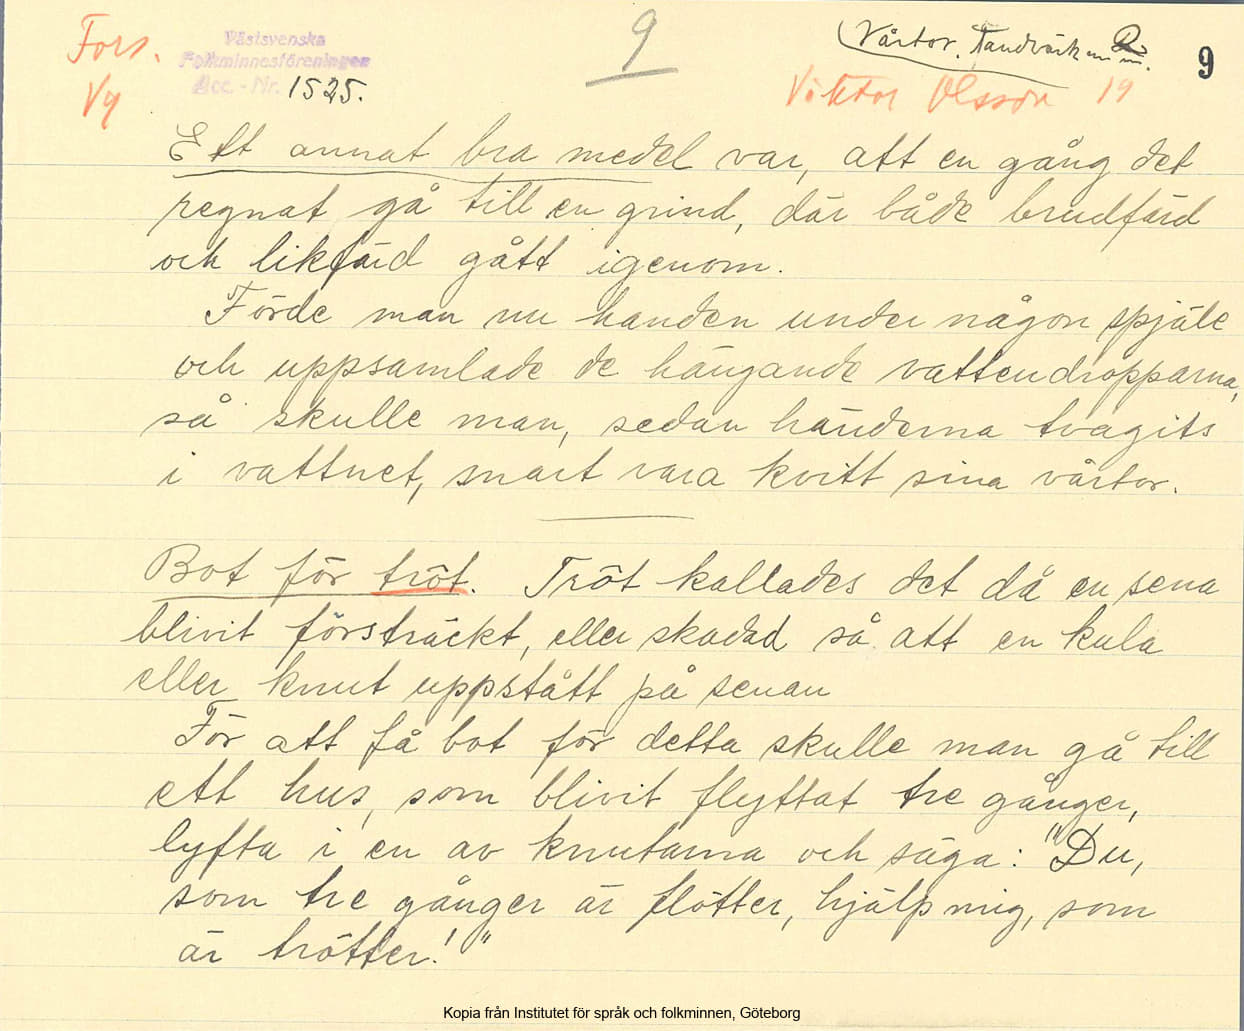 Fors.
Vg
Västsvenska
Folkminnesföreningen
Acc. - Nr. 1525.
9
Vårtor. Tandvärk
9
Viktor Olsson 19
Ett annat bra medel var, att en gång det
regnat gå till en grind, där både brudfärd
och likfärd gått igenom.
Förde man nu handen under någon spjäle
och uppsamlade de hängande vattendropparna,
så skulle man, sedan händerna tvagits
i vattnet, snart vara kvitt sina vårtor.
Bot för tröt. Tröt kallades det då en sena
blivit försträckt, eller skadad så att en kula
eller knut uppstått på senan
För att få bot för detta skulle man gå till
ett hus, som blivit flyttat tre gånger,
lyfta i en av knutarna och säga: "Du,
som tre gånger är flötter, hjälp mig, som
är trötter!"
Kopia från Institutet för språk och folkminnen, Göteborg